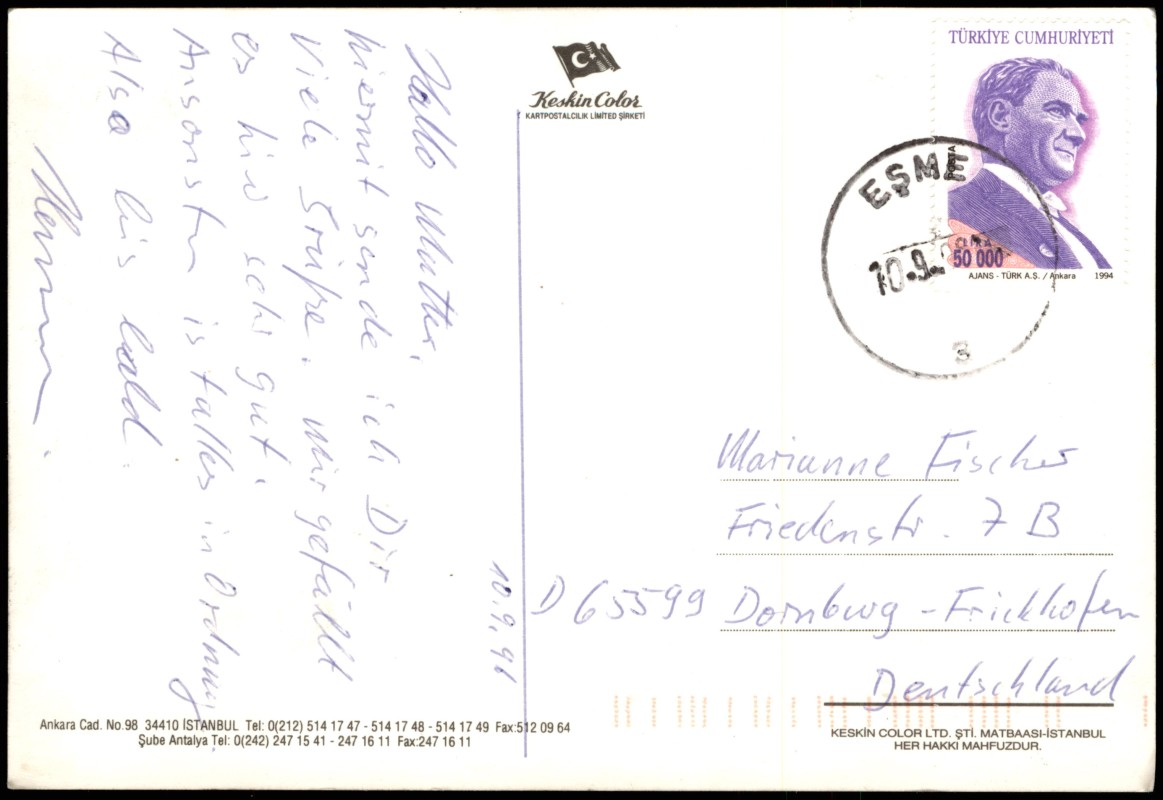 10.9.96
Hallo Mutter,
hiermit sende ich Dir
viele Grüße. Mir gefällt
es hir sehr gut.
Ansonsten ist alles in Ordnung
Also bis bald
Keskin Color
KARTPOSTALCILIK LIMITED ŞİRKETİ
TÜRKİYE CUMHURİYETİ
POSTA
50 000
AJANS - TÜRK A.Ş. / Ankara 1994
EŞME
10.9.
3
Marianne Fischer
Friedenstr. 7 B
D 65599 Dornburg - Frickhofen
Deutschland
Ankara Cad. No.98 34410 İSTANBUL Tel: 0(212) 514 17 47 - 514 17 48 - 514 17 49 Fax:512 09 64
Şube Antalya Tel: 0(242) 247 15 41 - 247 16 11 Fax:247 16 11
KESKİN COLOR LTD. ŞTİ. MATBAASI-İSTANBUL
HER HAKKI MAHFUZDUR.